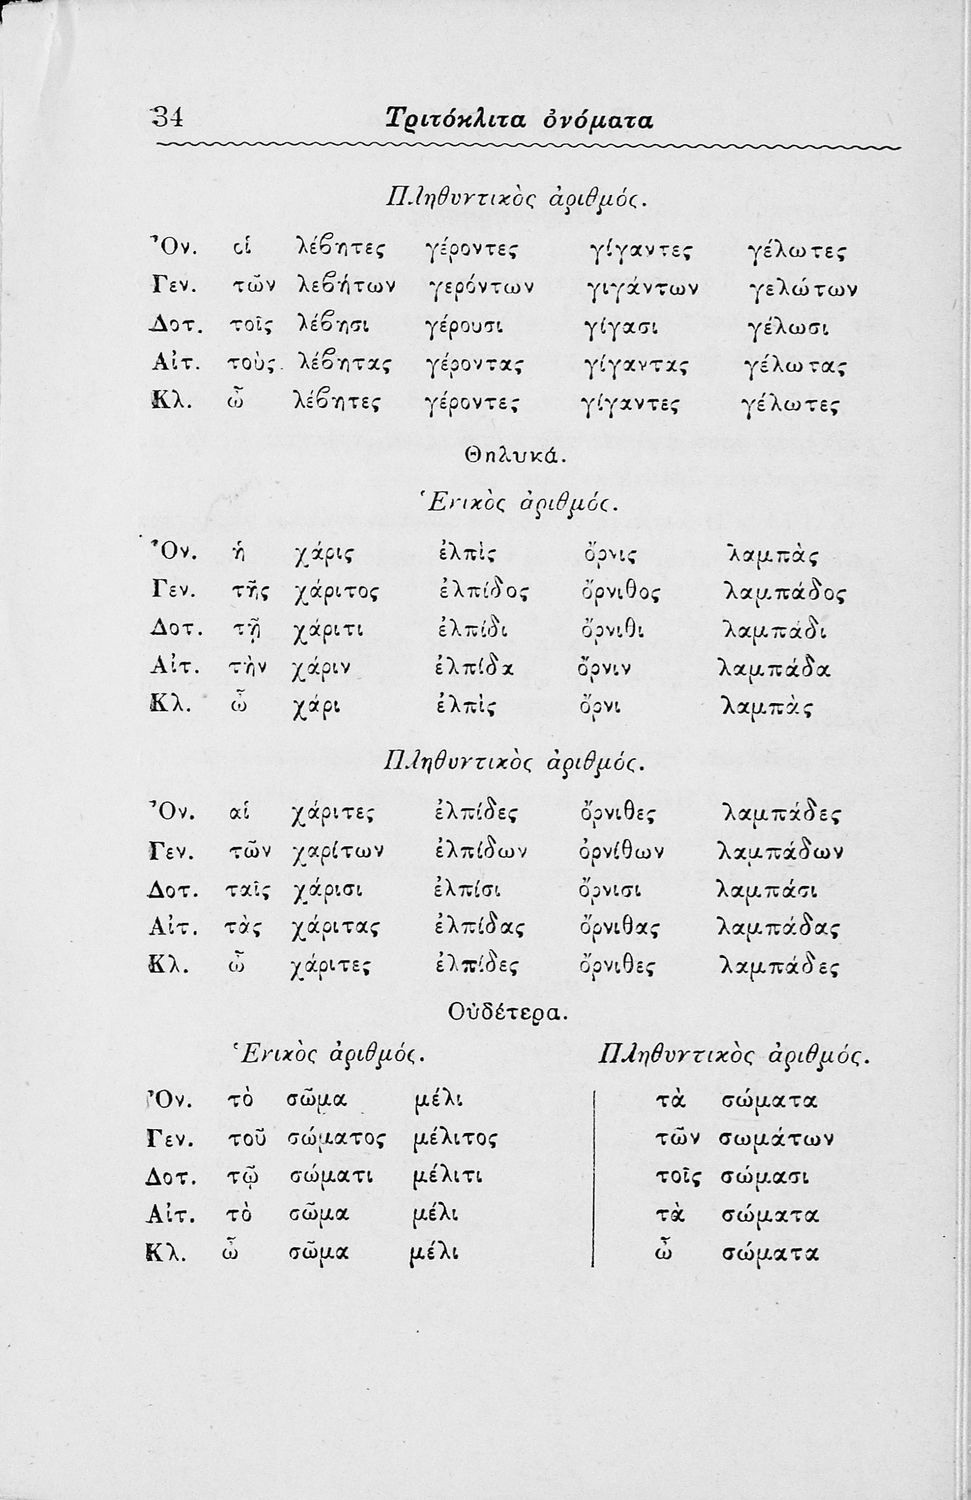 34 Τριτόκλιτα ὀνόματα
Πληθυντικὸς ἀριθμός.
Ὀν. οἱ λέβητες γέροντες γίγαντες γέλωτες
Γεν. τῶν λεβήτων γερόντων γιγάντων γελώτων
Δοτ. τοῖς λέβησι γέρουσι γίγασι γέλωσι
Αἰτ. τοὺς λέβητας γέροντας γίγαντας γέλωτας
Κλ. ὦ λέβητες γέροντες γίγαντες γέλωτες
Θηλυκά.
Ἑνικὸς ἀριθμός.
Ὀν. ἡ χάρις ἐλπὶς ὄρνις λαμπὰς
Γεν. τῆς χάριτος ἐλπίδος ὄρνιθος λαμπάδος
Δοτ. τῇ χάριτι ἐλπίδι ὄρνιθι λαμπάδι
Αἰτ. τὴν χάριν ἐλπίδα ὄρνιν λαμπάδα
Κλ. ὦ χάρι ἐλπὶς ὄρνι λαμπὰς
Πληθυντικὸς ἀριθμός.
Ὀν. αἱ χάριτες ἐλπίδες ὄρνιθες λαμπάδες
Γεν. τῶν χαρίτων ἐλπίδων ὀρνίθων λαμπάδων
Δοτ. ταῖς χάρισι ἐλπίσι ὄρνισι λαμπάσι
Αἰτ. τὰς χάριτας ἐλπίδας ὄρνιθας λαμπάδας
Κλ. ὦ χάριτες ἐλπίδες ὄρνιθες λαμπάδες
Οὐδέτερα.
Ἑνικὸς ἀριθμός. Πληθυντικὸς ἀριθμός.
Ὀν. τὸ σῶμα μέλι τὰ σώματα
Γεν. τοῦ σώματος μέλιτος τῶν σωμάτων
Δοτ. τῷ σώματι μέλιτι τοῖς σώμασι
Αἰτ. τὸ σῶμα μέλι τὰ σώματα
Κλ. ὦ σῶμα μέλι ὦ σώματα